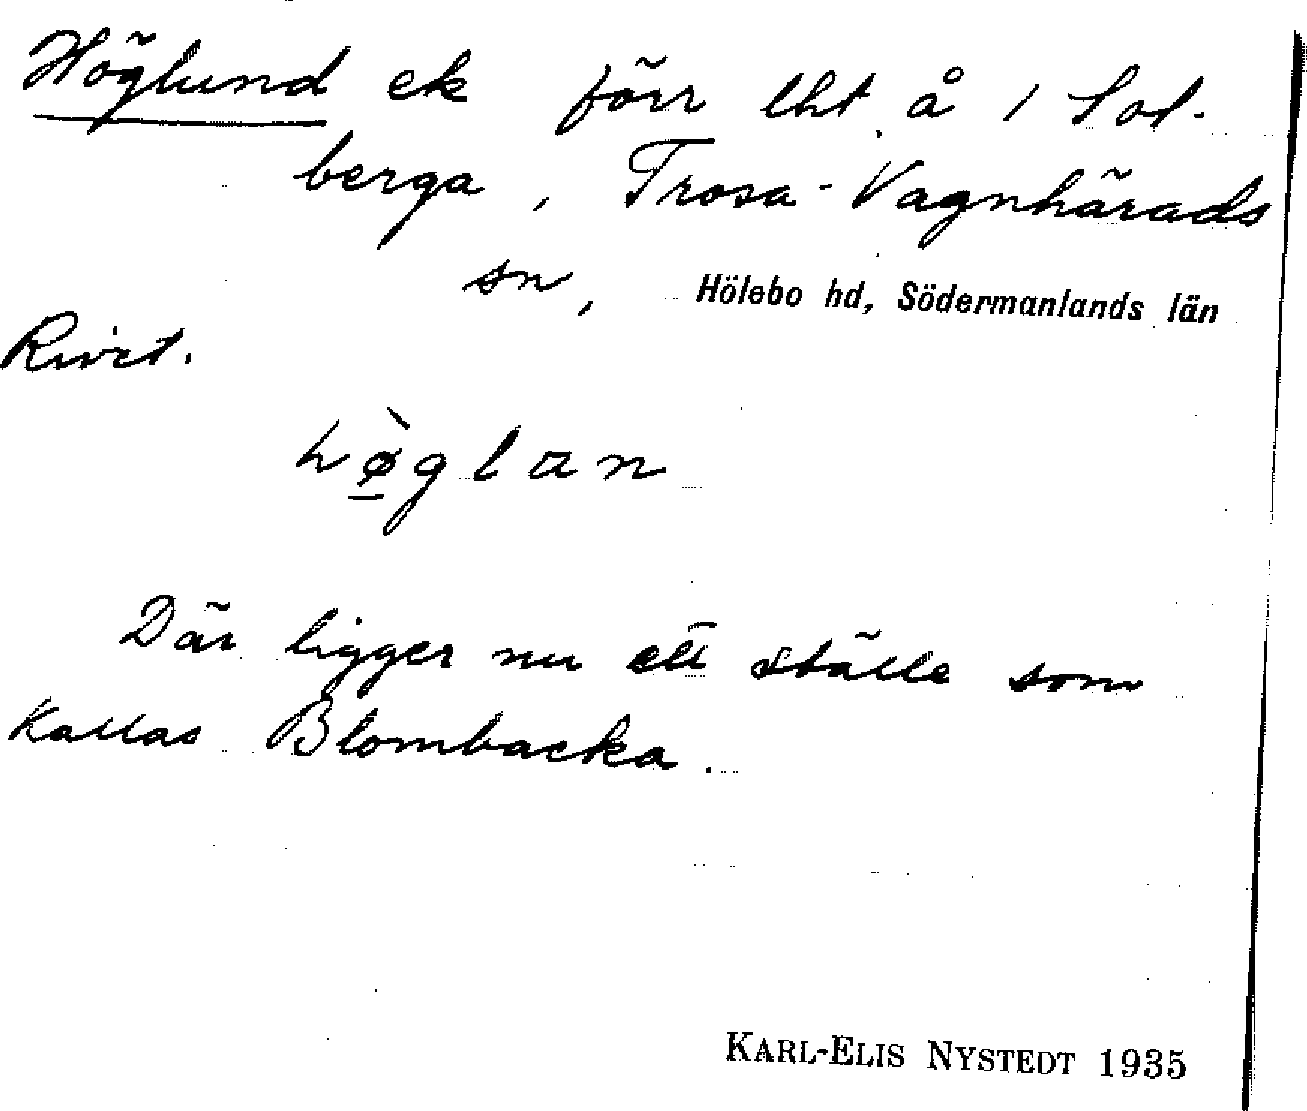 Höglund ek förr lht å 1 Sol-
berga, Trosa-Vagnhärads
sn, Hölebo hd, Södermanlands län
Rivet.
hø̲̀glan
Där ligger nu ett ställe som
kallas Blombacka.
KARL-ELIS NYSTEDT 1935